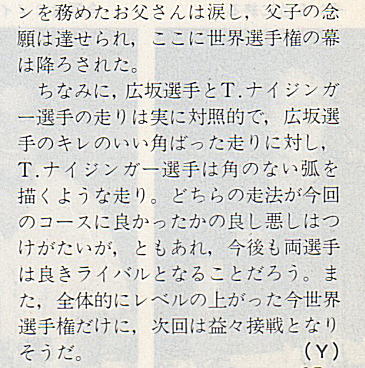 ンを務めたお父さんは涙し，父子の念
願は達せられ，ここに世界選手権の幕
は降ろされた。
　ちなみに，広坂選手とT.ナイジンガ
ー選手の走りは実に対照的で，広坂選
手のキレのいい角ばった走りに対し，
T.ナイジンガー選手は角のない弧を
描くような走り。どちらの走法が今回
のコースに良かったかの良し悪しはつ
けがたいが，ともあれ，今後も両選手
は良きライバルとなることだろう。ま
た，全体的にレベルの上がった今世界
選手権だけに，次回は益々接戦となり
そうだ。　　　　　　　　　　（Y）